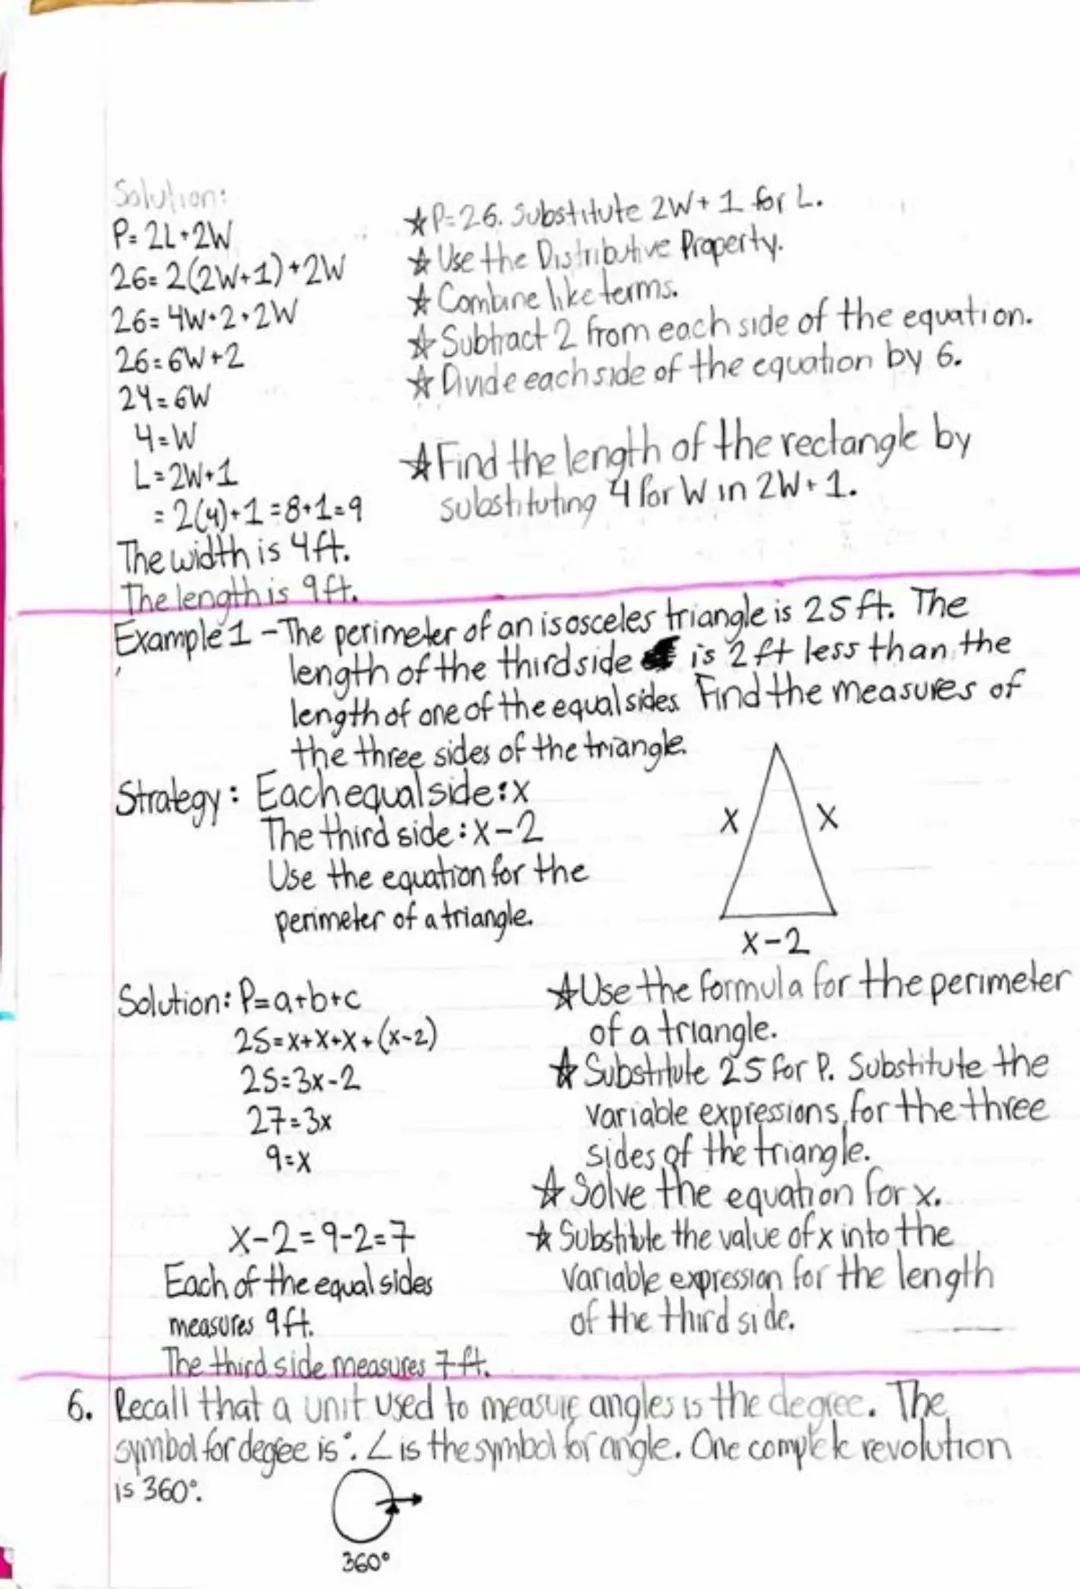 Solution:
P=2L+2W
★P=26. Substitute 2W+1 for L.
26=2(2W+1)+2W
★Use the Distributive Property.
26=4W+2+2W
★Combine like terms.
26=6W+2
★Subtract 2 from each side of the equation.
24=6W
★Divide each side of the equation by 6.
4=W
L=2W+1
★Find the length of the rectangle by
=2(4)+1=8+1=9
substituting 4 for W in 2W+1.
The width is 4ft.
The length is 9ft.
Example 1 -The perimeter of an isosceles triangle is 25 ft. The
length of the third side is 2 ft less than the
length of one of the equal sides. Find the measures of
the three sides of the triangle.
Strategy: Each equal side: x
The third side: x-2
Use the equation for the
perimeter of a triangle.
x
x
x-2
Solution: P=a+b+c
★Use the formula for the perimeter
of a triangle.
25=x+x+x+(x-2)
★Substitute 25 for P. Substitute the
25=3x-2
variable expressions for the three
27=3x
sides of the triangle.
9=x
★Solve the equation for x.
x-2=9-2=7
★Substitute the value of x into the
Each of the equal sides
variable expression for the length
measures 9ft.
of the third side.
The third side measures 7ft.
6. Recall that a unit used to measure angles is the degree. The
symbol for degree is °. ∠ is the symbol for angle. One complete revolution
is 360°.
360°